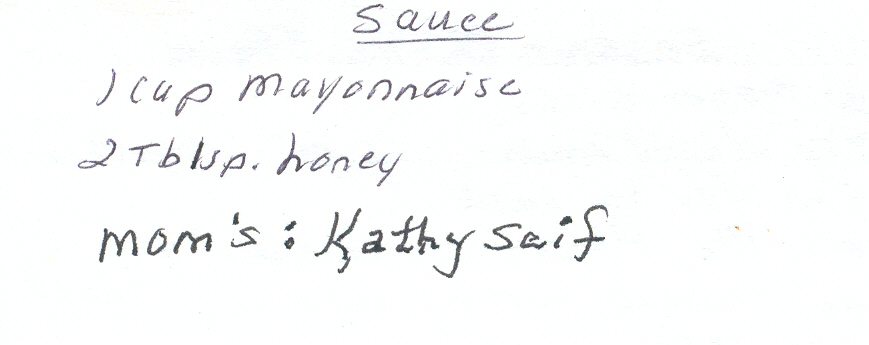 Sauce
1 cup mayonnaise
2 Tblsp. honey
mom's : Kathy Seif